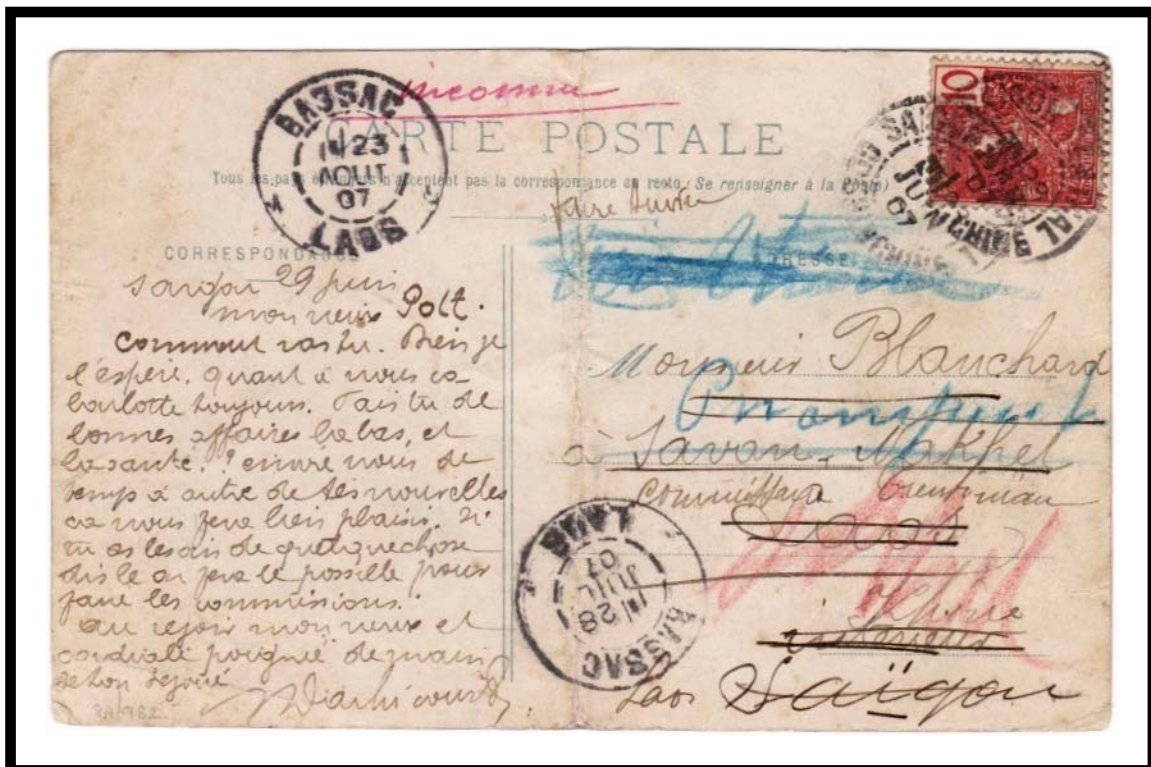 inconnu
BASSAC
23
AOUT
07
LAOS
CARTE POSTALE
Tous les pays étrangers n'acceptent pas la correspondance au recto (Se renseigner à la Poste)
10
JUIN
07
CORRESPONDANCE
ADRESSE
Saigon 29 juin
mon vieux Polt.
Comment vas tu. Bien je
l'espère. quant à nous ca
boulotte toujours. Fais tu de
bonnes affaires la bas, et
la santé. ? envoie nous de
temps à autre de tes nouvelles
ca nous fera bien plaisir. Si
tu as besoin de quelque chose
dis le on fera le possible pour
faire les commissions.
au revoir mon vieux et
cordiale poignée de main
de ton
Monsieur Blanchard
à Savan-Nakhet
Laos
Laos Saïgon
BASSAC
28
JUIL
07
LAOS